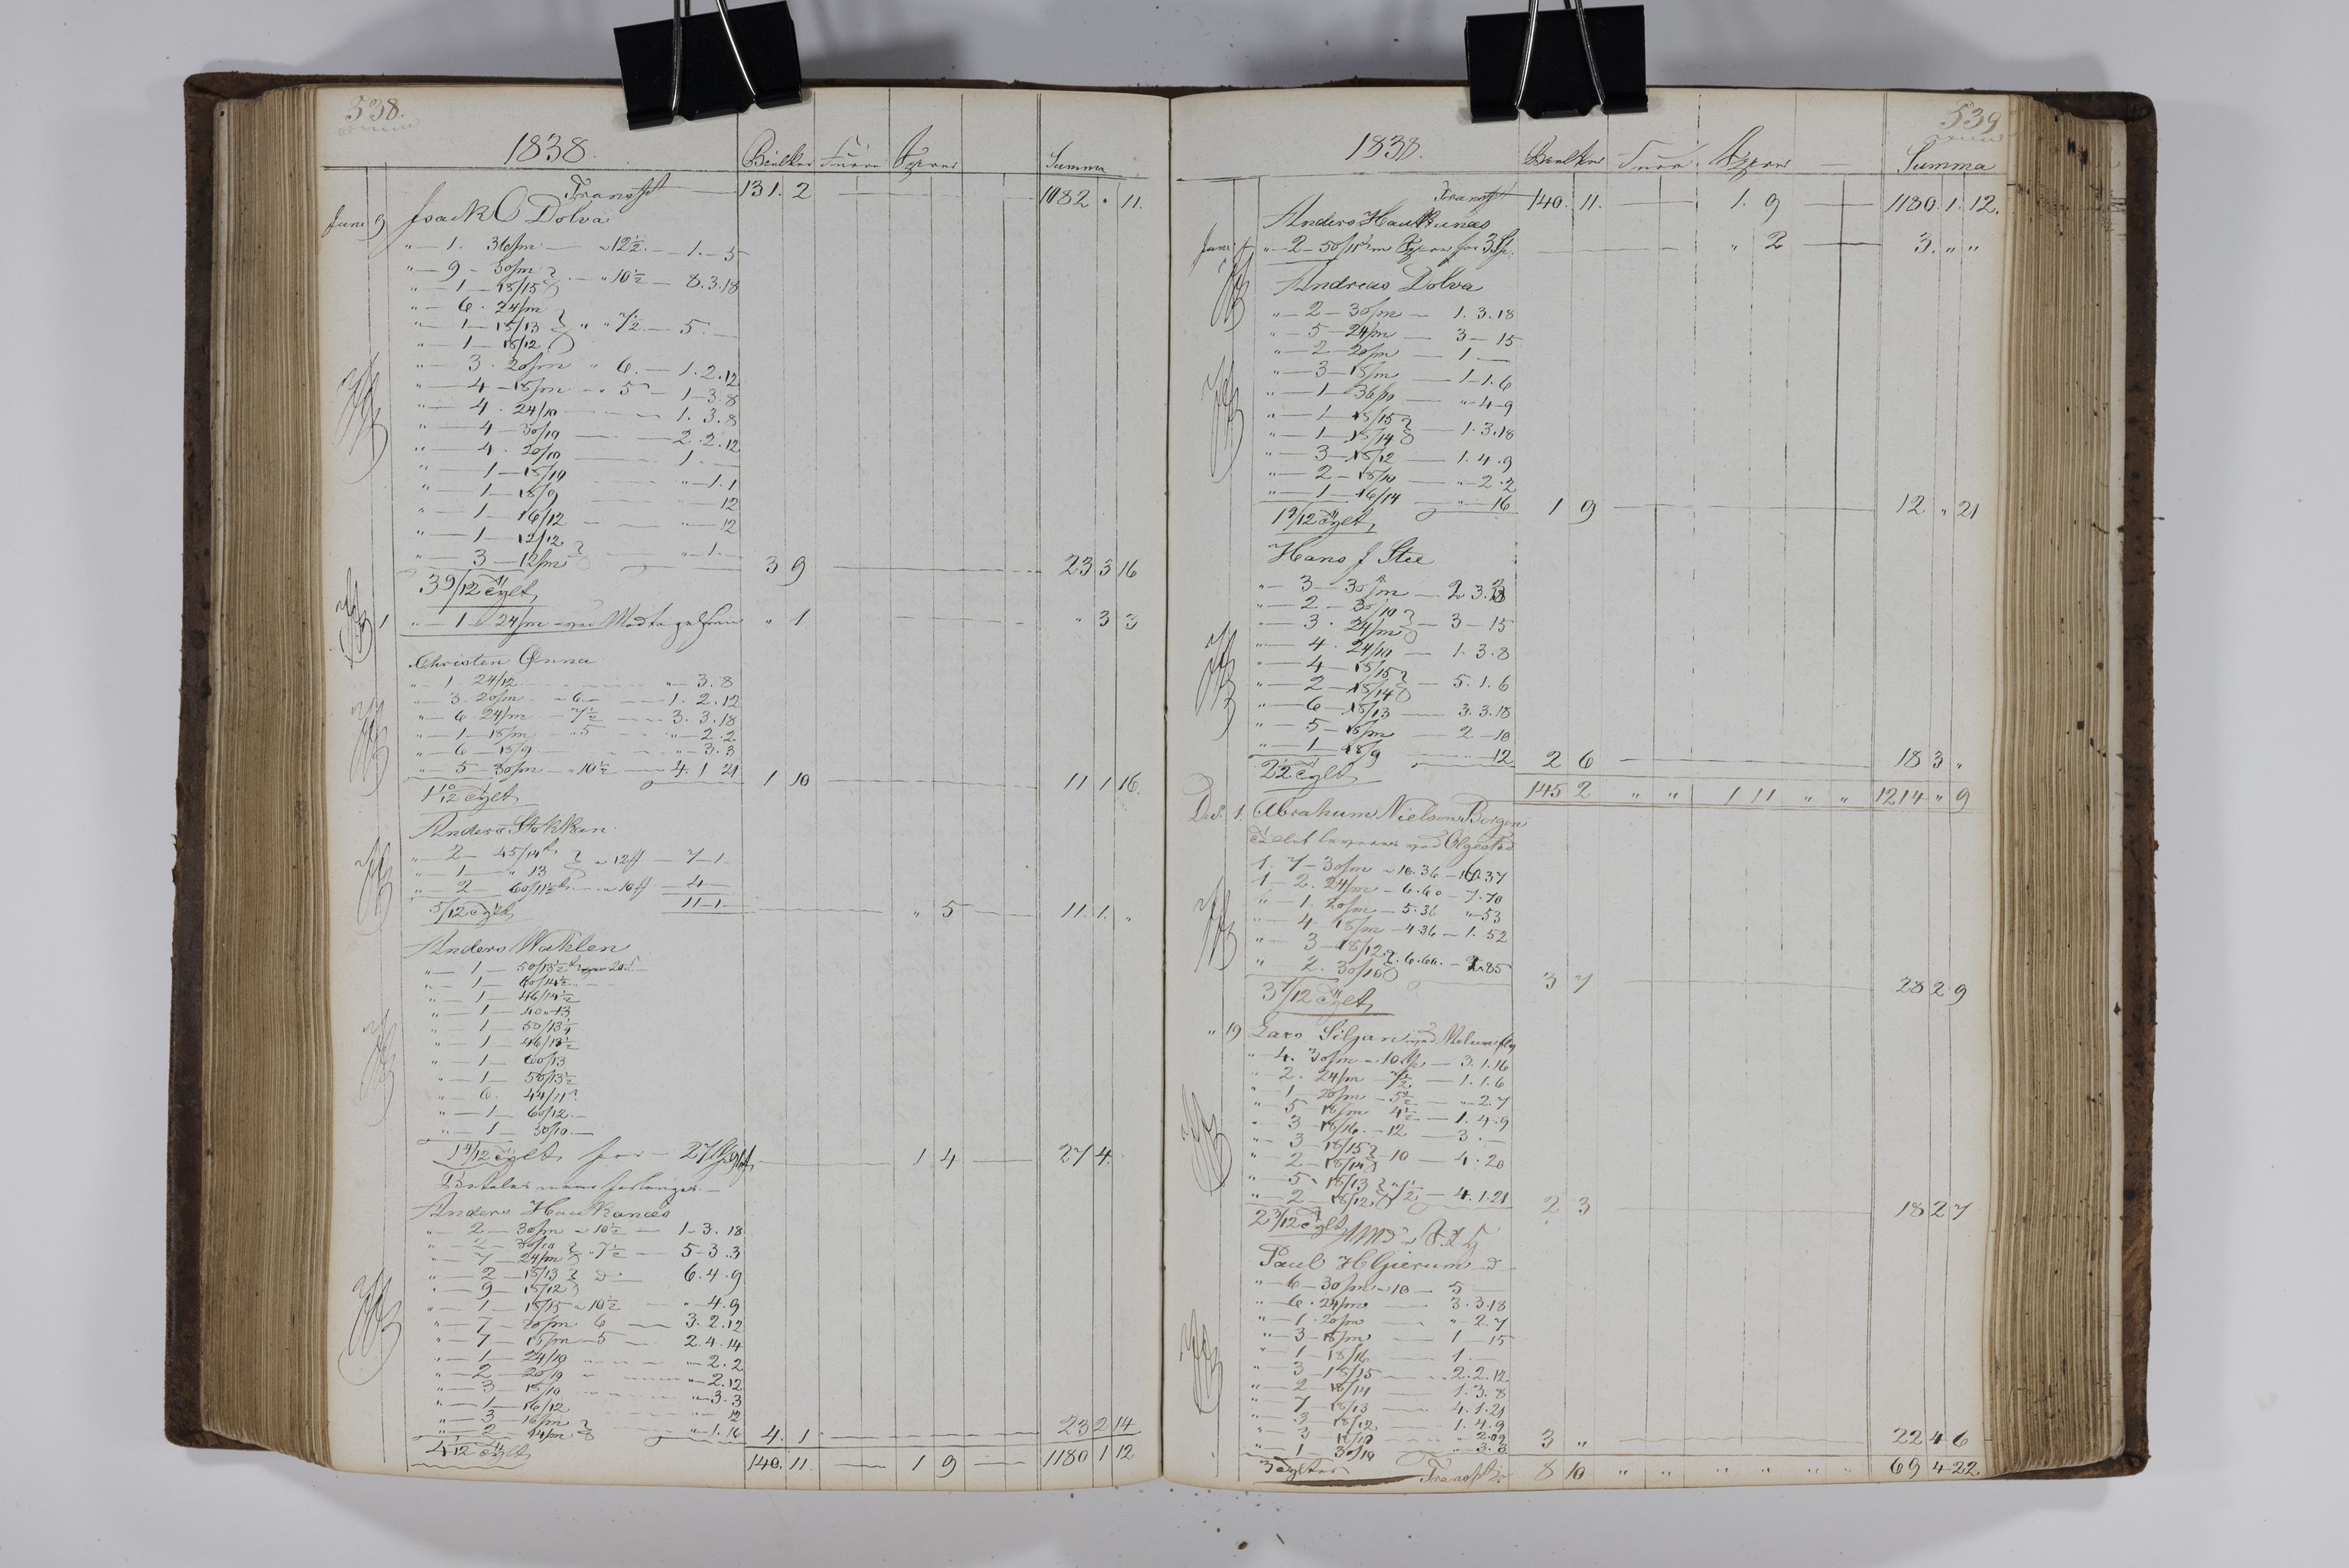 538.
1838. Bielker Furu Spirer Summa
Transpt 131. 2 1082 . 11.
Juni 9 Isack O Dolva
" 1. 36/m " 12½ 1. - 5
" 9 - 30/m
" 1 - 18/15 " 10½ 8.3.18
" 6. 24/m
" 1 - 18/13 " " 7½ 5.
" 1 - 18/12
" 3. 20/m " 6. 1.2.12
" 4 - 18/m " 5 1-3.8
" 4. 24/10 1.3.8
" 4 - 30/10 2.2.12
" 4. 20/10 1.
" 1 - 18/10 " 1.1
" 1 - 18/9 12
" 1 - 16/12 " 12
" 1 - 12/12
" 3 - 12/m " 1. 3 9 23 3 16
3 9/12 Tylt
" 1 - 24/m " 1 " 3 3
Christen Ønna
" 1. 24/12 " 3.8
" 3. 20/m - 6 1.2.12
" 6. 24/m - 7½ 3.3.18
" 1 - 18/m - " 5 " 2.2
" 6 - 18/9 " 3.3
" 5 - 30/m - " 10½ 4.1 21 1 10 11 1 16.
1 10/12 Tylt
Anders Stokken
" 2 - 45/14
" 1 - " 13 12 7-1
" 2 - 60/11½ 10 4
5/12 Tylt 11-1 " 5 11.1. "
Anders Wahlen
" 1 - 50/13½
" 1 - 60/14½
" 1 - 46/14½
" 1 - 40 " 13
" 1 - 50/13¼
" 1 - 46/13½
" 1 - 60/13
" 1 - 50/13½
" 6. 44/11
" 1 - 60/12
" 1 - 30/10
1 4/12 Tylt for - 27 1 4 27 4.
Betales naar forlanges.
Anders Haukanæs
" 2 - 30/m " 10½ 1-3.18
" 2 - 30/10
" 7 - 24/m " 7½ 5-3.3
" 2 - 18/13
" 9 - 18/12 6.4.9
" 1 - 18/15 " 10½ " 4.9
" 7 - 20/m 6 3.2.12
" 7 - 18/m - 5 2.4.14
" 1 - 24/10 " 2.2
" 2 - 20/10 " 2.12
" 3 - 18/10 " 3.3
" 1 - 16/12 12
" 3 - 16/m
" 2 14/m " 1.16 4. 1 23 2 14
4 1/12 Tylt 140. 11. 1 9 1180 1 12
539
1838. Bielker Furu Spirer Summa
Transpt 140. 11. 1. 9 1180.1.12.
Anders Haukanæs
Juni " 2 - 50/11½ Spirer for 3 " 2 3. " "
Andreas Dolva
" 2 - 30/m 1.3.18
" 5 - 24/m 3 - 15
" 2 - 20/m 1
" 3 - 18/m 1-1.6
" 1 - 36/10 " 4-9
" 1 - 18/15
" 1 - 18/14 1.3.18
" 3 - 18/12 1.4.9
" 2 - 18/10 " 2.2
" 1 - 16/14 " 16 1 9 12 " 21
1 9/12 Tylt
Hans J Stee
" 3 - 30/m 2 3.
" 2 - 30/10
" 3. 24/m 3 - 15
" 4. 24/10 1.3.8
" 4 - 18/15
" 2 - 18/14 5.1.6
" 6 - 18/13 3.3.18
" 5 - 18/m 2 - 10
" 1 - 18/9 12 2 6 18 3 "
2 ½ Tylt 145 2 " " 1 11 " " 1214 " 9
Dec. 1. Abraham Nielsen Borgen
1. 7 - 30/m - 10.36 - 16.37
1 - 2. 24/m - 6.60 - 7.70
" 1. 20/m - 5.36 " 53
" 4. 18/m - 4.36 - 1.52
" 3 - 18/12
" 2. 30/10 . 6.60. 2.85 3 7 28 2 9
3 7/12 Tylt
" 19 Lars Siljan
" 4. 30/m - 10 ½ 3.1.16
" 2. 24/m 7½ 1.1.6
" 1 20/m - 5½ " 2.7
" 5 18/m 4½ 1.4.9
" 3 18/16 - 12 3.
" 3 18/15
" 2 - 18/14 10 4.20
" 5 - 18/13
" 2 18/12 7½ 4.1.21 2 3 18 2 7
2 3/12 Tylt
Paul H Gierum
" 6 - 30/m - 10 5
" 6. 24/m 3.3.18
" 1. 20/m " 2.7
" 3 - 18/m 1 15
" 1 18/16 1.
" 3 18/15 2.2.12
" 2 18/14 1.3.8
" 7 18/13 4.1.21
" 3 18/12 1.4.9
" 3 18/10
" 1 30/10 " 3.3 3 " 22 4 6
3 Tylter Transpt 8 10 " " " " " " 69 4 22